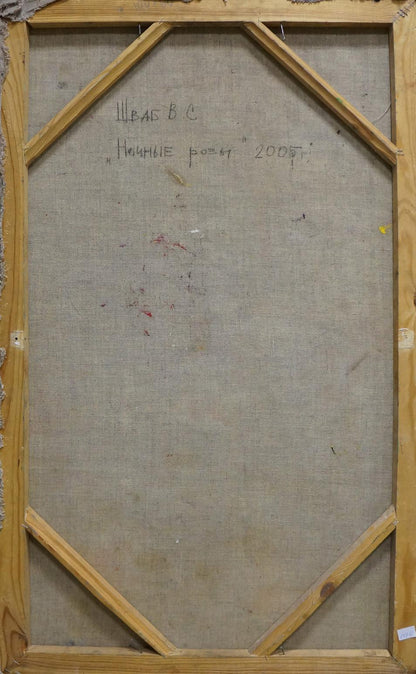 Шваб В С
„Ночные розы" 2005г.